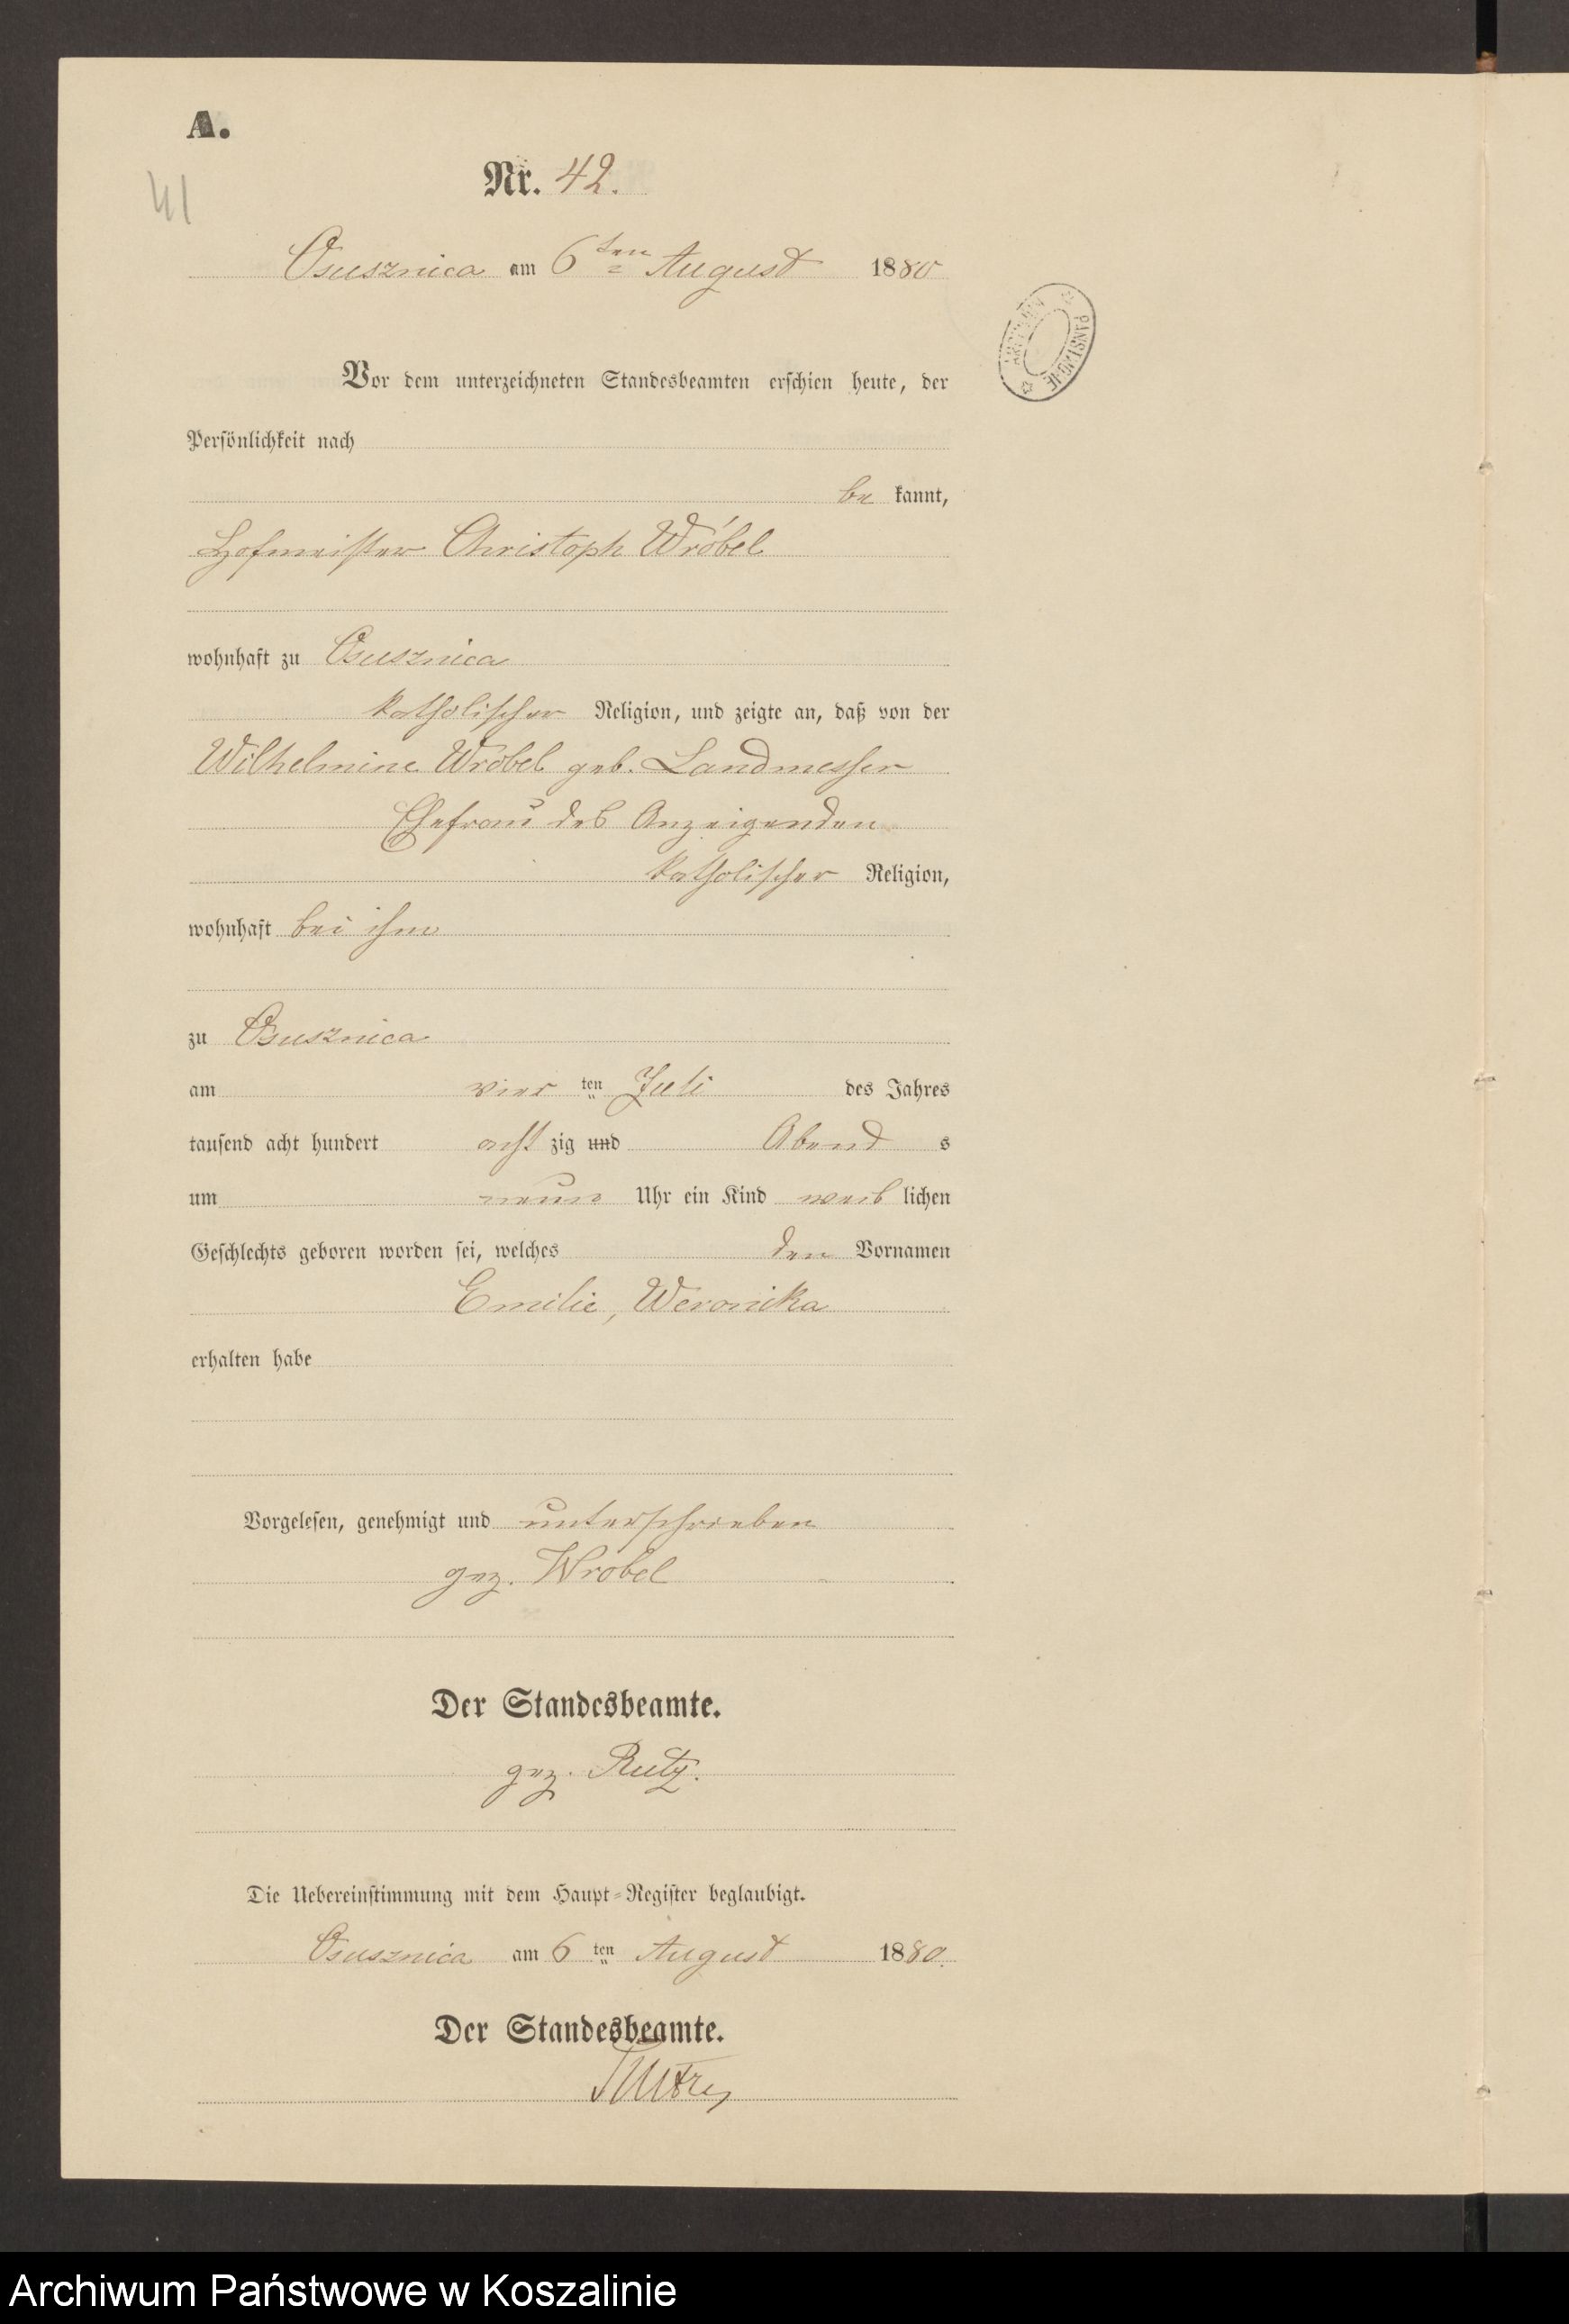 A.
41
Nr. 42.
Osusznica am 6ten August 1880
Vor dem unterzeichneten Standesbeamten erschien heute, der
Persönlichkeit nach
be kannt,
Hofmeister Christoph Wróbel
wohnhaft zu Osusznica
katholischer Religion, und zeigte an, daß von der
Wilhelmine Wróbel geb. Landmesser
Ehefrau des Anzeigenden
katholischer Religion,
wohnhaft bei ihm
zu Osusznica
am vier ten Juli des Jahres
tausend acht hundert acht zig und Abend s
um neun Uhr ein Kind weib lichen
Geschlechts geboren worden sei, welches den Vornamen
Emilie, Weronika
erhalten habe
Vorgelesen, genehmigt und unterschrieben
gez. Wrobel
Der Standesbeamte.
gez. Rutz.
Die Uebereinstimmung mit dem Haupt-Register beglaubigt.
Osusznica am 6 ten August 1880.
Der Standesbeamte.
Archiwum Państwowe w Koszalinie